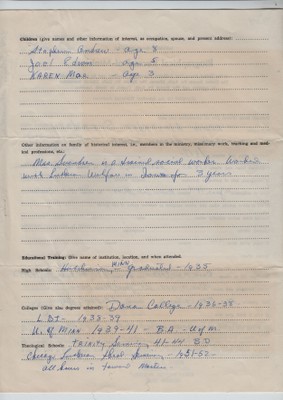 Children (give names and other information of interest, as occupation, spouse, and present address):
Stephen Andrew - age 8
Joel Edwin - age 5
KAREN Mae - age 3
Other information on family of historical interest, i.e., members in the ministry, missionary work, nursing and medical professions, etc.:
Mrs. is a trained social worker. Worked
with Lutheran Welfare in for 3 years
Educational Training: Give name of institution, location, and when attended.
High Schools: Hutchinson, MINN graduated - 1935
Colleges (Give also degrees received): Dana College - 1936-38
L B I - 1938-39
U. of Minn 1939-41 - B.A. - U of M
Theological Schools: Trinity Seminary, 41-44 B.D
Chicago Lutheran Seminary - 1951-52 -
all towards Masters